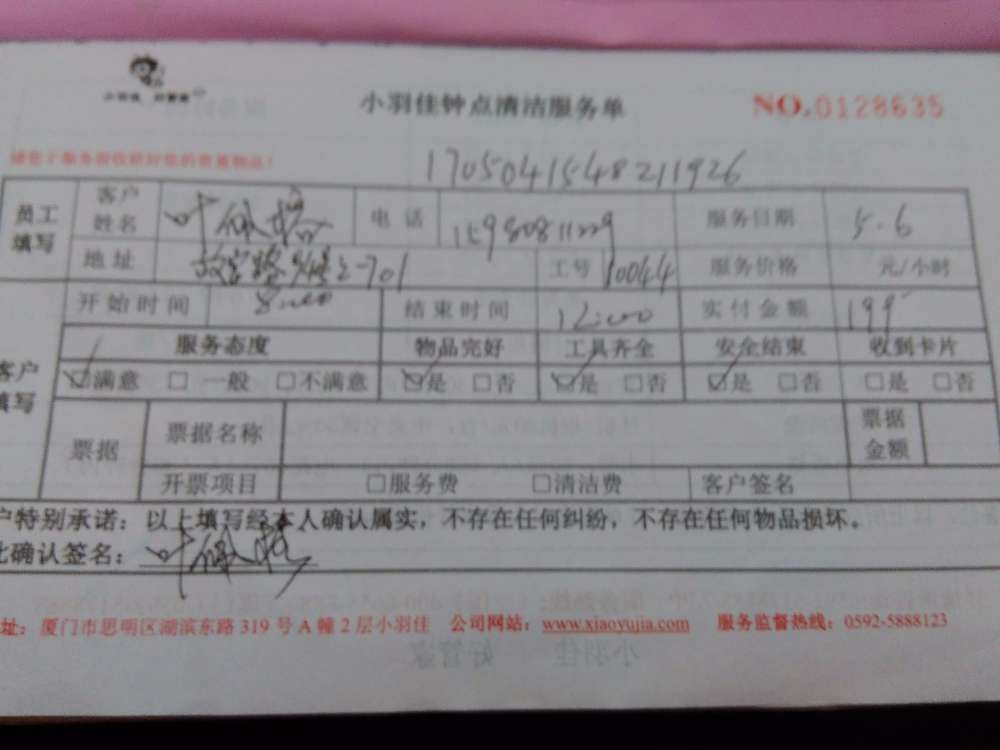 小羽佳 好管家
小羽佳钟点清洁服务单
NO.0128635
1705041548211926
员工填写 客户姓名 叶佩 电话 15980811229 服务日期 5.6
地址 2-701 工号 10044 服务价格 元/小时
开始时间 8:00 结束时间 12:00 实付金额 199
服务态度 物品完好 工具齐全 安全结束 收到卡片
客户填写 ☑满意 □一般 □不满意 ☑是 □否 ☑是 □否 ☑是 □否 □是 □否
票据 票据名称 票据金额
开票项目 □服务费 □清洁费 客户签名
户特别承诺：以上填写经本人确认属实，不存在任何纠纷，不存在任何物品损坏。
此确认签名：叶佩
址：厦门市思明区湖滨东路 319 号 A 幢 2 层小羽佳 公司网站：www.xiaoyujia.com 服务监督热线：0592-5888123